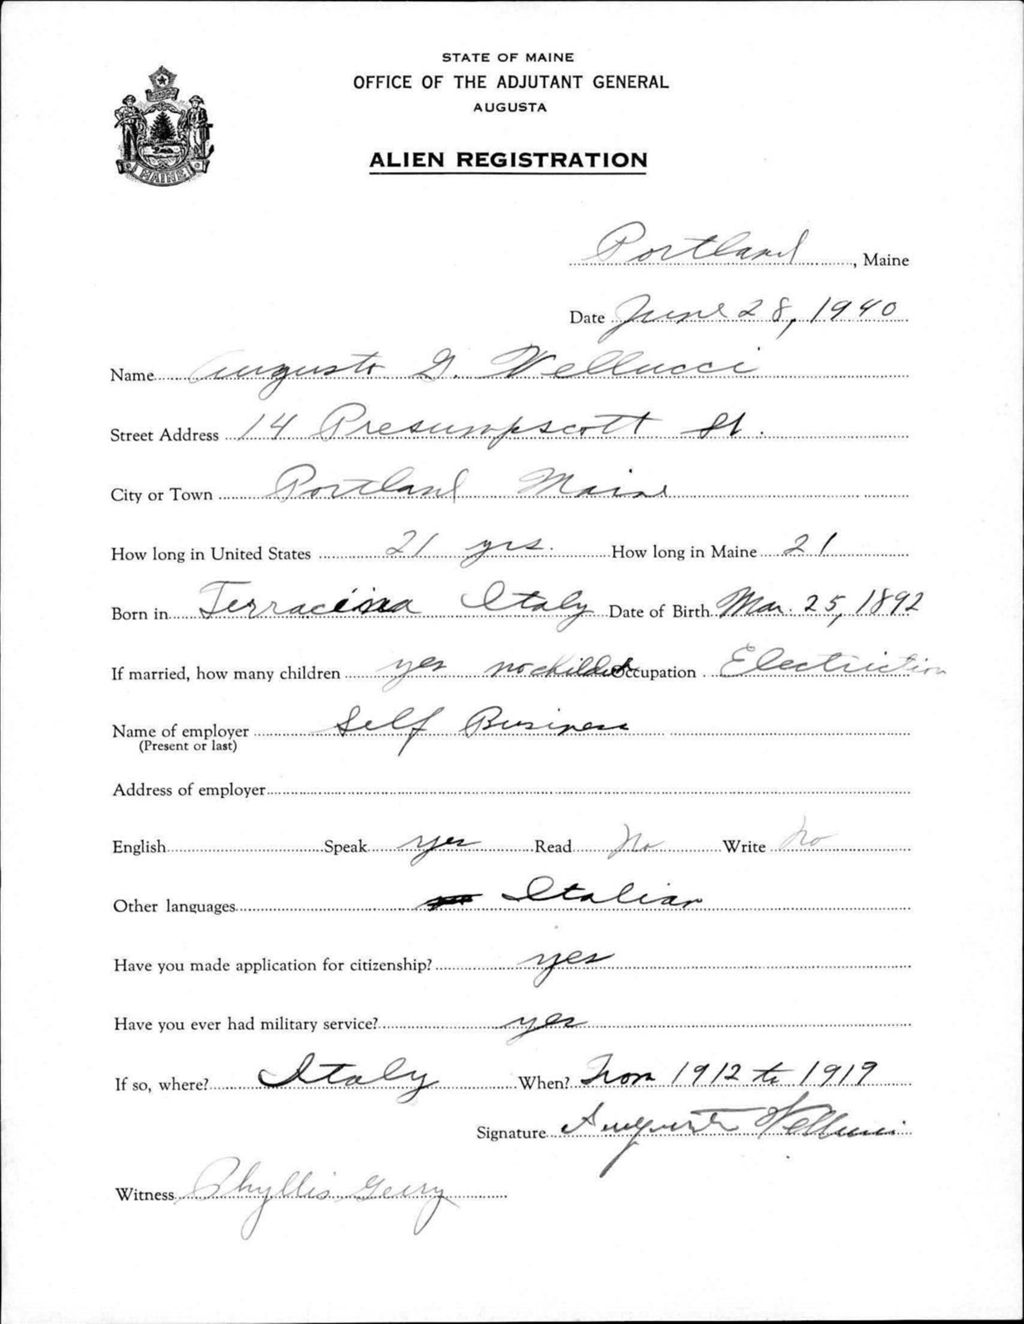 STATE OF MAINE
OFFICE OF THE ADJUTANT GENERAL
AUGUSTA
ALIEN REGISTRATION
MAINE
Portland, Maine
Date June 28, 1940
Name Augusto G. Vellucci
Street Address 14 Presumpscott St.
City or Town Portland Maine
How long in United States 21 yrs. How long in Maine 21
Born in Terracina Italy Date of Birth Mar. 25, 1892
If married, how many children yes no children Occupation Electriction
Name of employer Self Business
(Present or last)
Address of employer
English Speak yes Read No Write No
Other languages Italian
Have you made application for citizenship? yes
Have you ever had military service? yes
If so, where? Italy When? From 1912 to 1919
Signature Augusto Vellucci
Witness Phyllis Geery